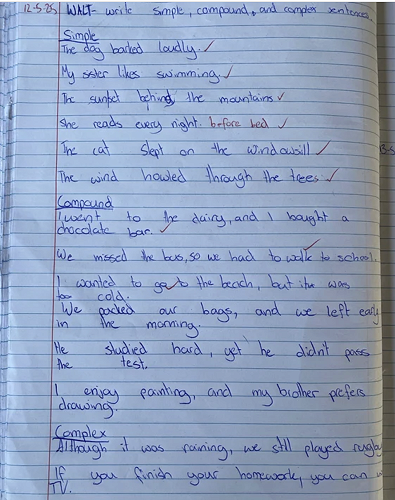 12-5-25 WALT- write simple, compound, and complex sentences.
Simple
The dog barked loudly.
My sister likes swimming.
The sunset behind the mountains
She reads every night. before bed
The cat slept on the windowsill
The wind howled through the trees.
Compound
I went to the dairy, and I bought a
chocolate bar.
We missed the bus, so we had to walk to school.
I wanted to go to the beach, but it was
too cold.
We packed our bags, and we left early
in the morning.
He studied hard, yet he didn't pass
the test.
I enjoy painting, and my brother prefers
drawing.
Complex
Although it was raining, we still played rugby
If you finish your homework, you can
TV.